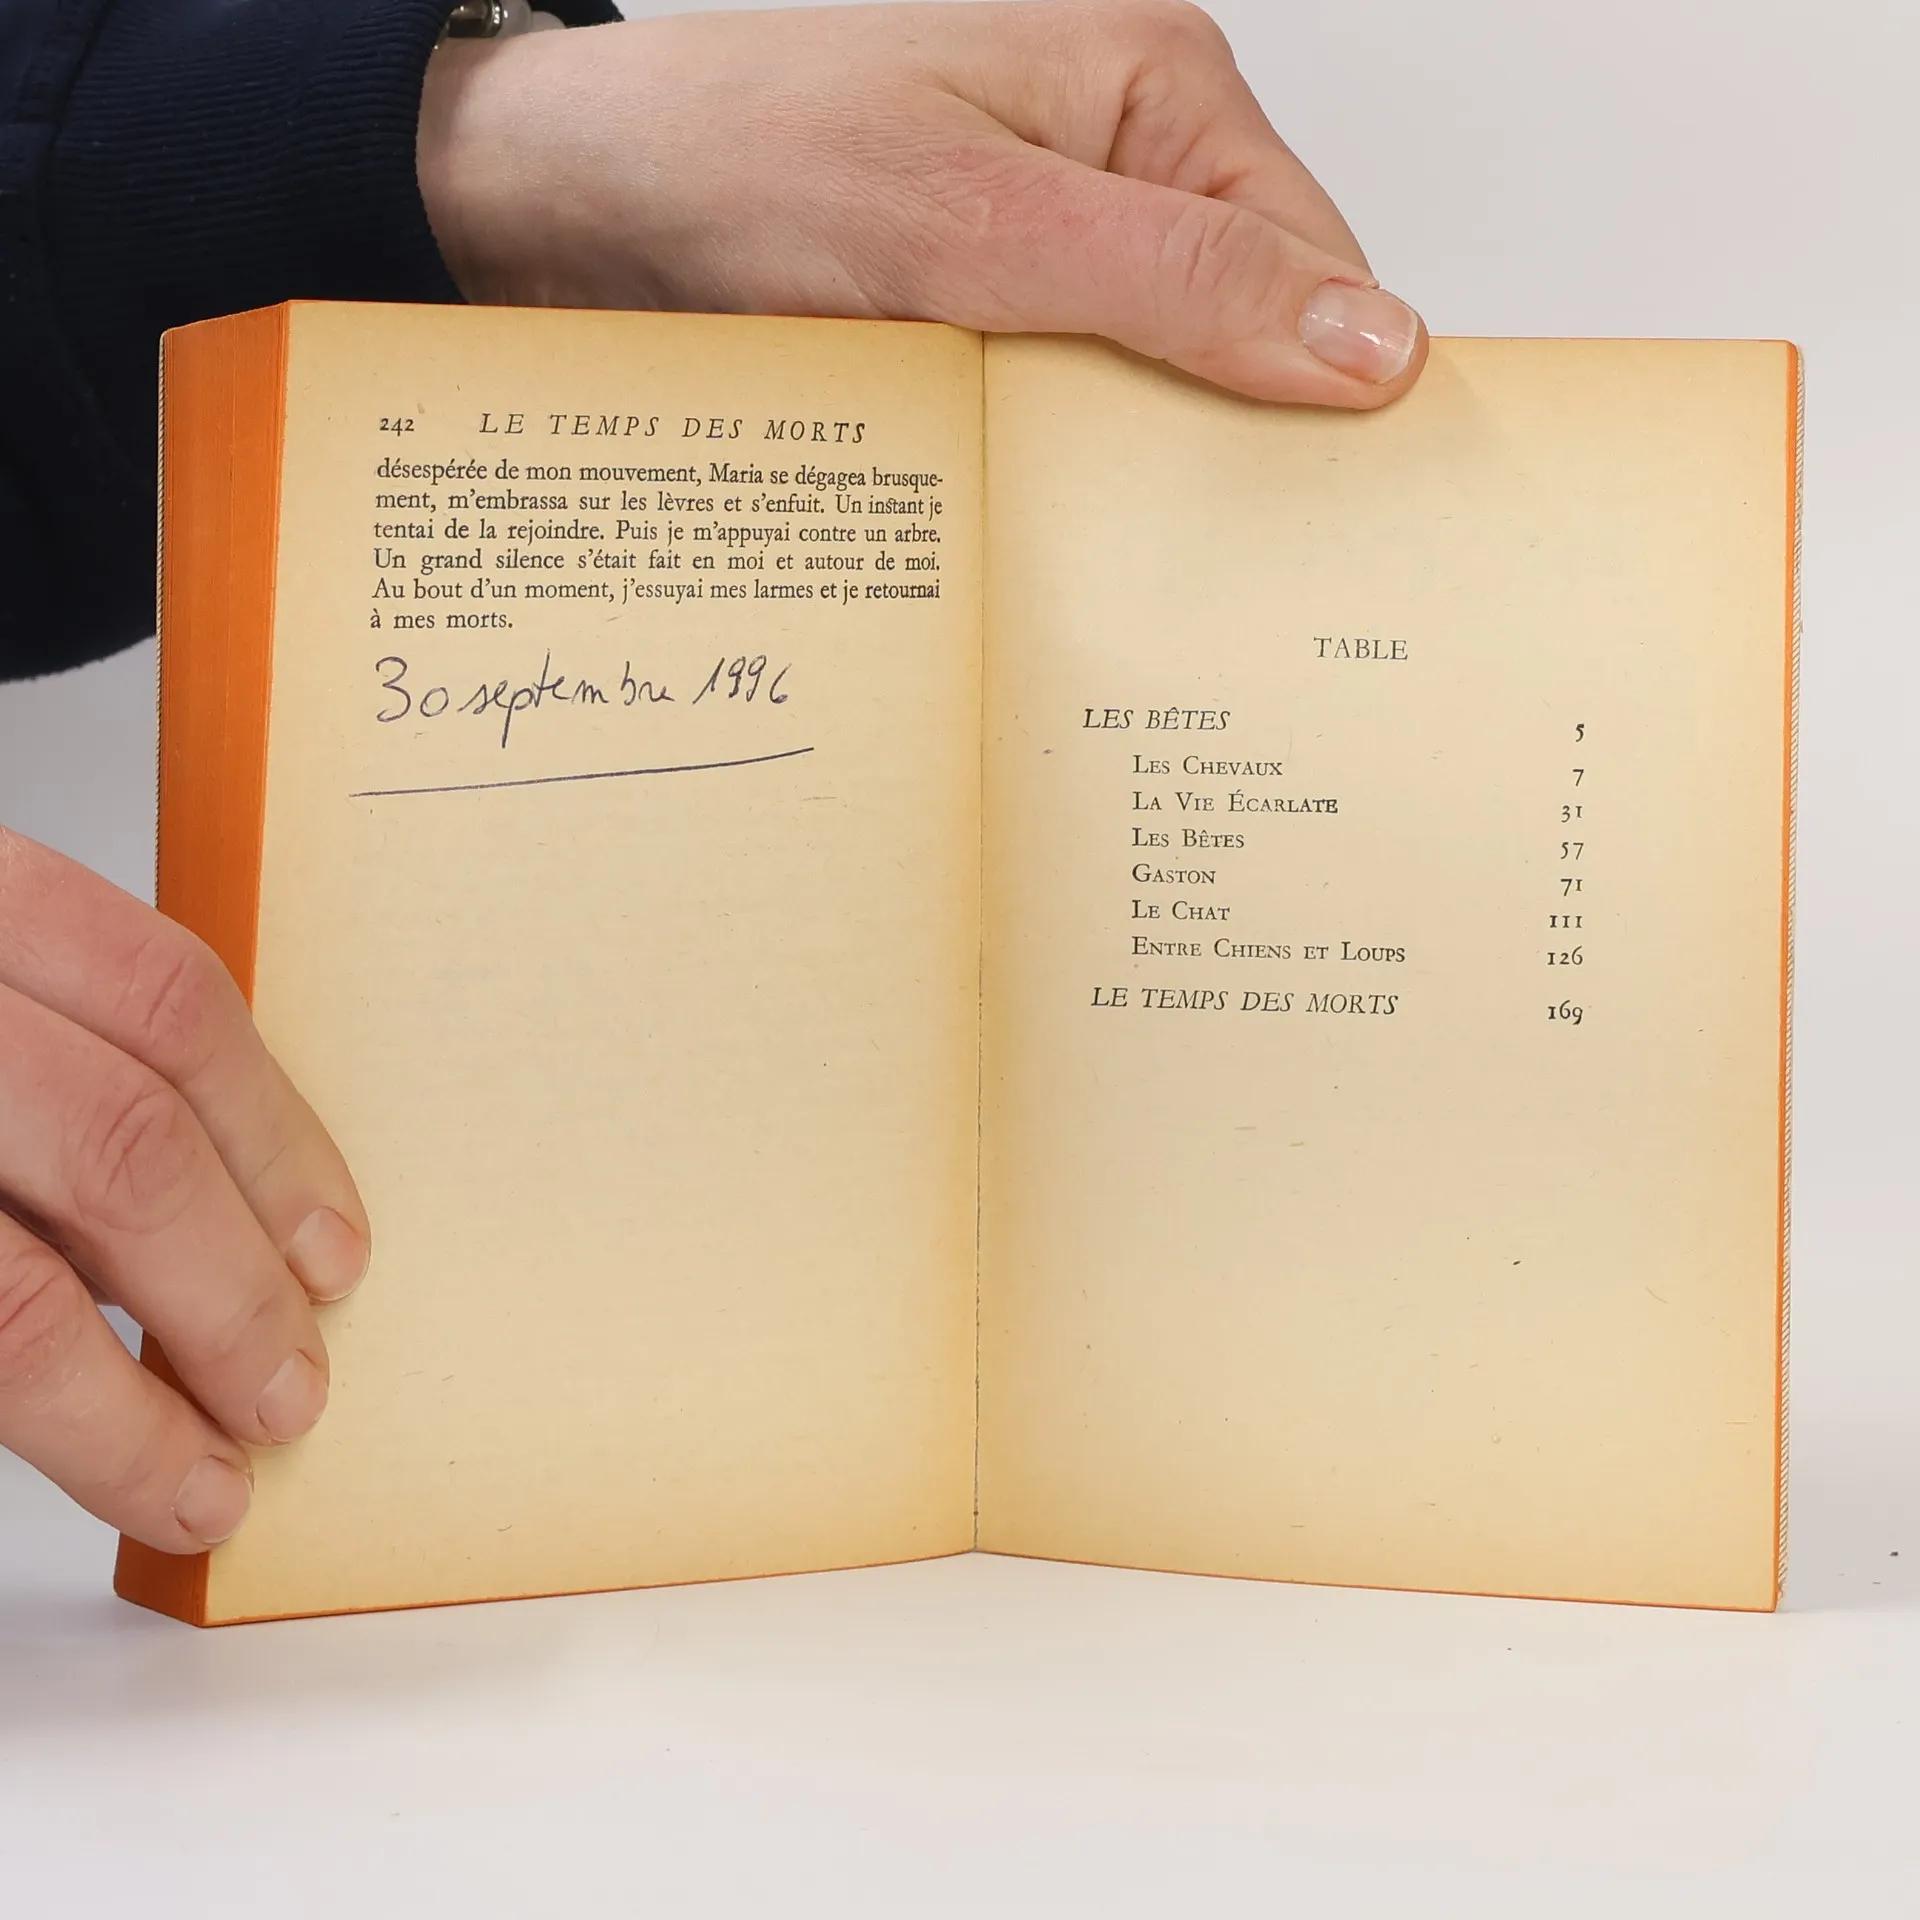 242 LE TEMPS DES MORTS
désespérée de mon mouvement, Maria se dégagea brusque-
ment, m'embrassa sur les lèvres et s'enfuit. Un instant je
tentai de la rejoindre. Puis je m'appuyai contre un arbre.
Un grand silence s'était fait en moi et autour de moi.
Au bout d'un moment, j'essuyai mes larmes et je retournai
à mes morts.
30 septembre 1996
TABLE
LES BÊTES 5
LES CHEVAUX 7
LA VIE ÉCARLATE 31
LES BÊTES 57
GASTON 71
LE CHAT 111
ENTRE CHIENS ET LOUPS 126
LE TEMPS DES MORTS 169